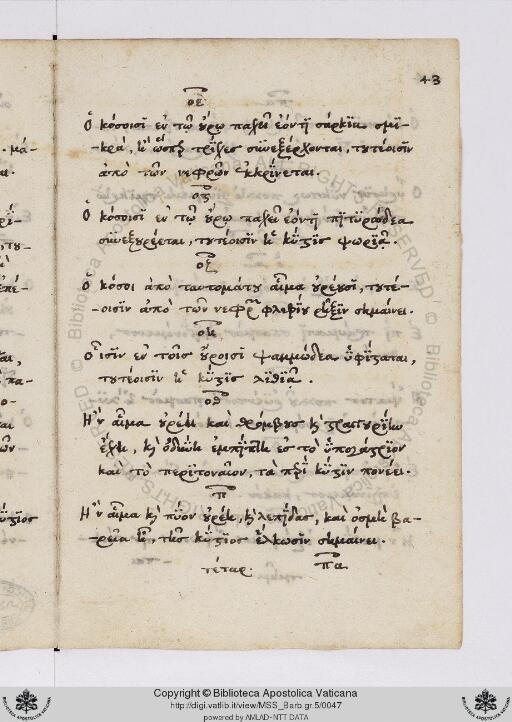 43
οε
Ὁκόσοισι ἐν τῷ οὔρῳ παχεῖ ἐόντι σάρκια σμι-
κρὰ, ἢ ὥσπερ τρίχες συνεξέρχονται, τουτέοισιν
ἀπὸ τῶν νεφρῶν ἐκκρίνεται.
Ὁκόσοισι ἐν τῷ οὔρῳ παχεῖ ἐόντι πιτυρώδεα
συνεξουρέεται, τουτέοισιν ἡ κύστις ψωριᾷ.
οζ
Ὁκόσοι ἀπὸ ταυτομάτου αἷμα οὐρέουσι, τουτέ-
οισιν ἀπὸ τῶν νεφρῶν φλεβίου ῥῆξιν σημαίνει.
οη
Ὁκόσοισιν ἐν τοῖς οὔροισι ψαμμώδεα ὑφίσταται,
τουτέοισιν ἡ κύστις λιθιᾷ.
οθ
Ἢν αἷμα οὐρέῃ καὶ θρόμβους καὶ στραγγουρίην
ἔχῃ, καὶ ὀδύνη ἐμπίπτῃ ἐς τὸ ὑπογάστριον
καὶ τὸ περιτόναιον, τὰ περὶ κύστιν πονέει.
π
Ἢν αἷμα καὶ πῦον οὐρέῃ, καὶ λεπίδας, καὶ ὀσμὴ βα-
ρεῖα ᾖ, τῆς κύστιος ἕλκωσιν σημαίνει.
τέταρ. πα
Copyright © Biblioteca Apostolica Vaticana
http://digi.vatlib.it/view/MSS_Barb.gr.5/0047
powered by AMLAD-NTT DATA